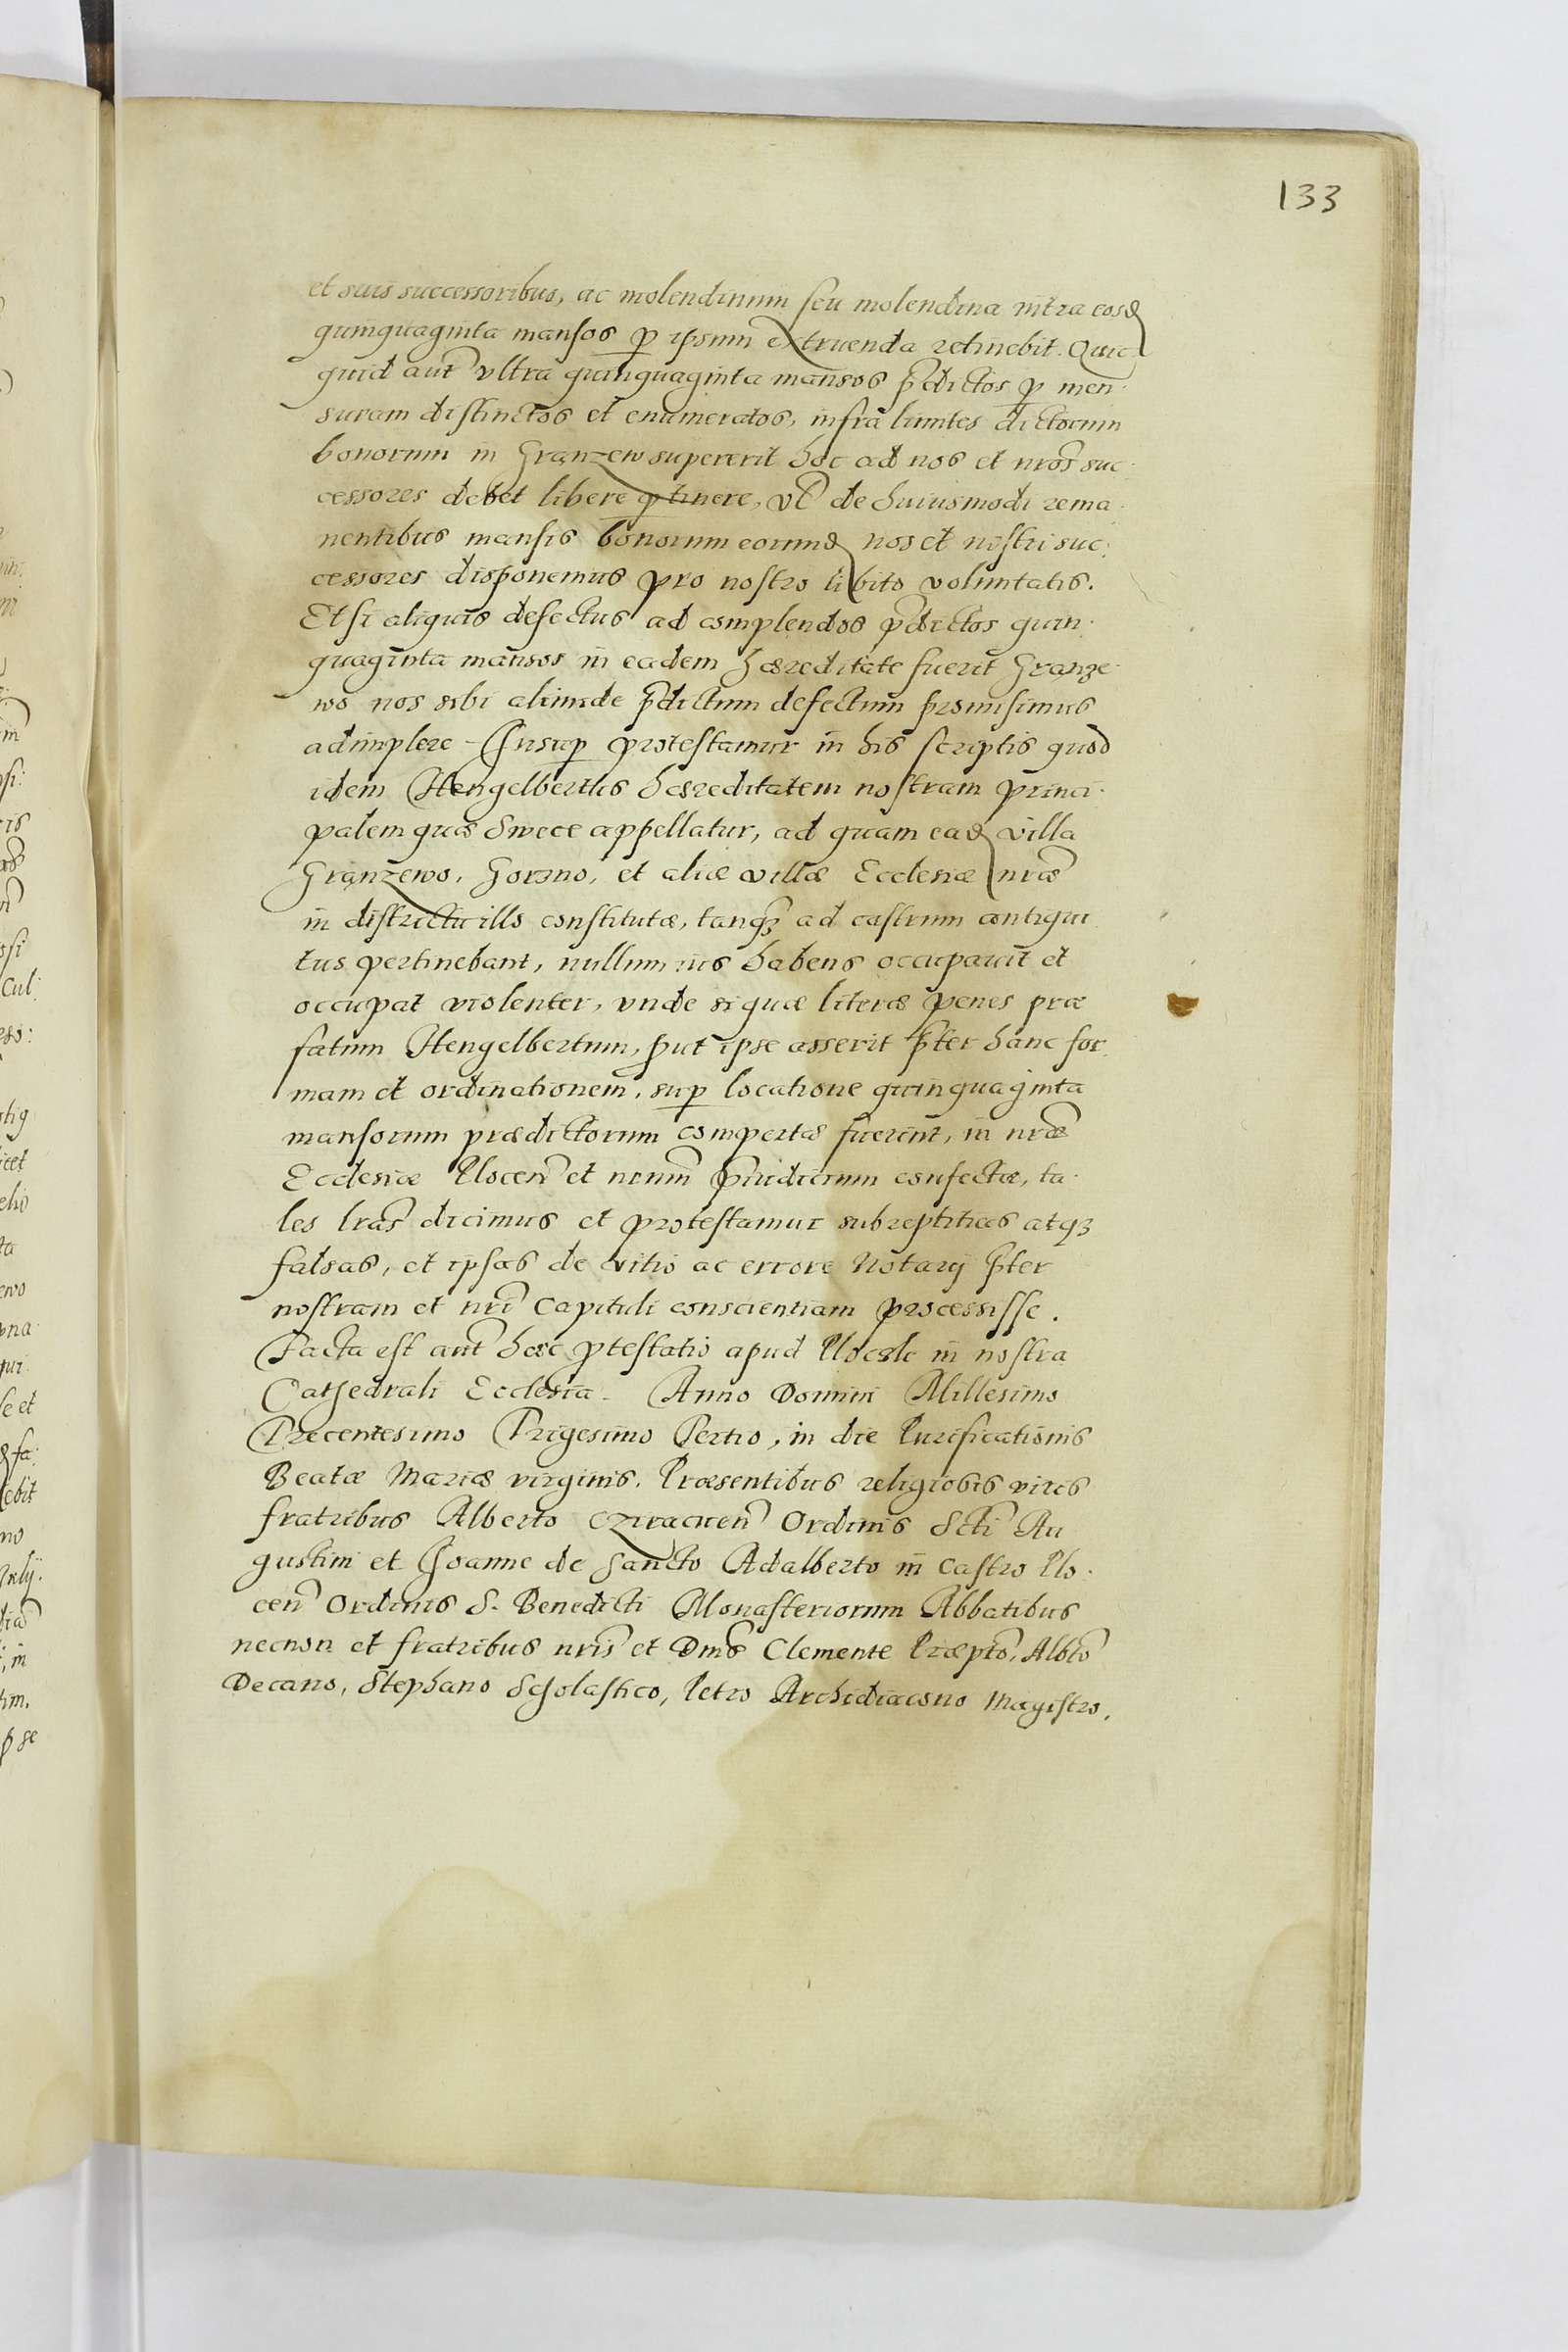 133
et suis successoribus, ac molendinum seu molendina intra eosd
quinquaginta mansos p ipsum extruenda retinebit. Quic
quid aut ultra quinquaginta mansos pdictos p men
suram distinctos et enumeratos, infra limites dictorum
bonorum in Granzew supererit hoc ad nos et nros suc
cessores debet libere ptinere, vt de huiusmodi rema
nentibus mansis bonorum eorund nos et nostri suc
cessores disponemus pro nostro libito voluntatis.
Et si aliquis defectus ad complendos pdictos quin
quaginta mansos in eadem hæreditate fuerit Granze
wo nos sibi aliunde pdictum defectum promisimus
adimplere - Insup protestamur in his scriptis quod
idem Hengelbertus hæreditatem nostram princi
palem quæ Swece appellatur, ad quam ead villa
Granzewo, Gorzno, et aliæ villæ Ecclesiæ nræ
in districtu illo constitutæ, tanq ad castrum contigui
tus pertinebant, nullum ius habens occupavit et
occupat violenter, vnde si quæ literæ penes præ
fatum Hengelbertum, put ipse asserit pter hanc for
mam et ordinationem, sup locatione quinquaginta
mansorum prædictorum compertæ fuerint, in nræ
Ecclesiæ Plocen et nrum piudicium confectæ, ta
les lras dicimus et protestamur subreptitias atq3
falsas, et ipsas de vitio ac errore Notarij pter
nostram et nri Capituli conscientiam processisse.
Facta est aut hæc ptestatio apud Plocek in nostra
Cathedrali Ecclesia. Anno Domini Millesimo
Trecentesimo Trigesimo Tertio, in die Purificationis
Beatæ Mariæ virginis. Præsentibus religiosis viris
fratribus Alberto Czirwacuen Ordinis Scti Au
gustini et Joanne de Sancto Adalberto in Castro Plo
cen Ordinis S. Benedicti Monasteriorum Abbatibus
necnon et fratribus nris et Dnis Clemente Præpto, Albto
Decano, Stephano Scholastico, Petro Archidiacono Magistro,